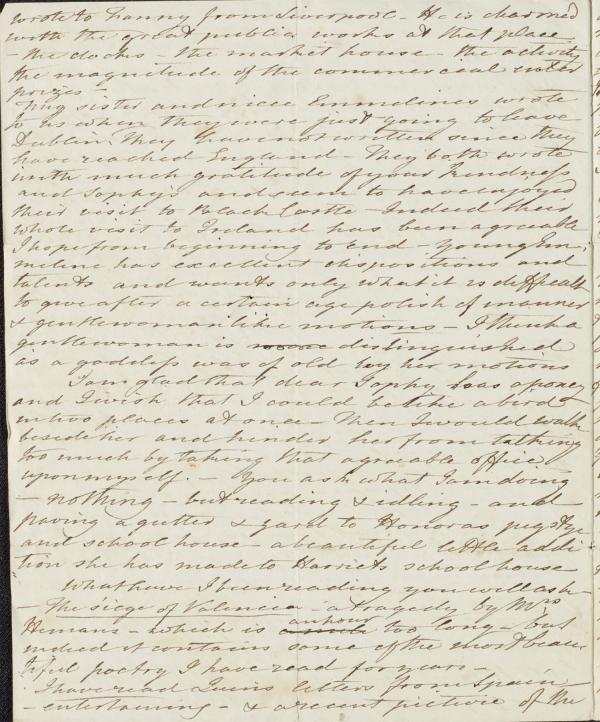 wrote to Fanny from Liverpool - He is charmed
with the great public works at that place
- the docks - the market house - the activity
the magnitude of the commercial enter
prizes -
My sister and niece Emmelines wrote
to us when they were just going to leave
Dublin. They have not written since they
have reached England - They both wrote
with much gratitude of your kindness
and Sophy's and seem to have enjoyed
their visit to Black Castle - Indeed their
whole visit to Ireland has been agreeable
I hope from beginning to end - Young Em-
meline has excellent dispositions and
talents and wants only what it is difficult
to give after a certain age polish of manner
& gentlewomanlike motions - I think a
gentlewoman is distinguished
as a goddess was of old by her motions
I am glad that dear Sophy has a poney
and I wish that I could be like a bird
in two places at once - Then I would walk
beside her and hinder her from talking
too much by taking that agreeable office
upon myself. - You ask what I am doing
- nothing - but reading & idling - and
paving a gutter & yard to Honoras pig stye
and school house - a beautiful little addi
tion she has made to Harriets school house
What have I been reading you will ask -
- The siege of Valencia - a tragedy by Mrs
Hemans - which is an hour too long - but
indeed it contains some of the most beau
tiful poetry I have read for years
I have read Quins letters from Spain
- entertaining - & a recent picture of the